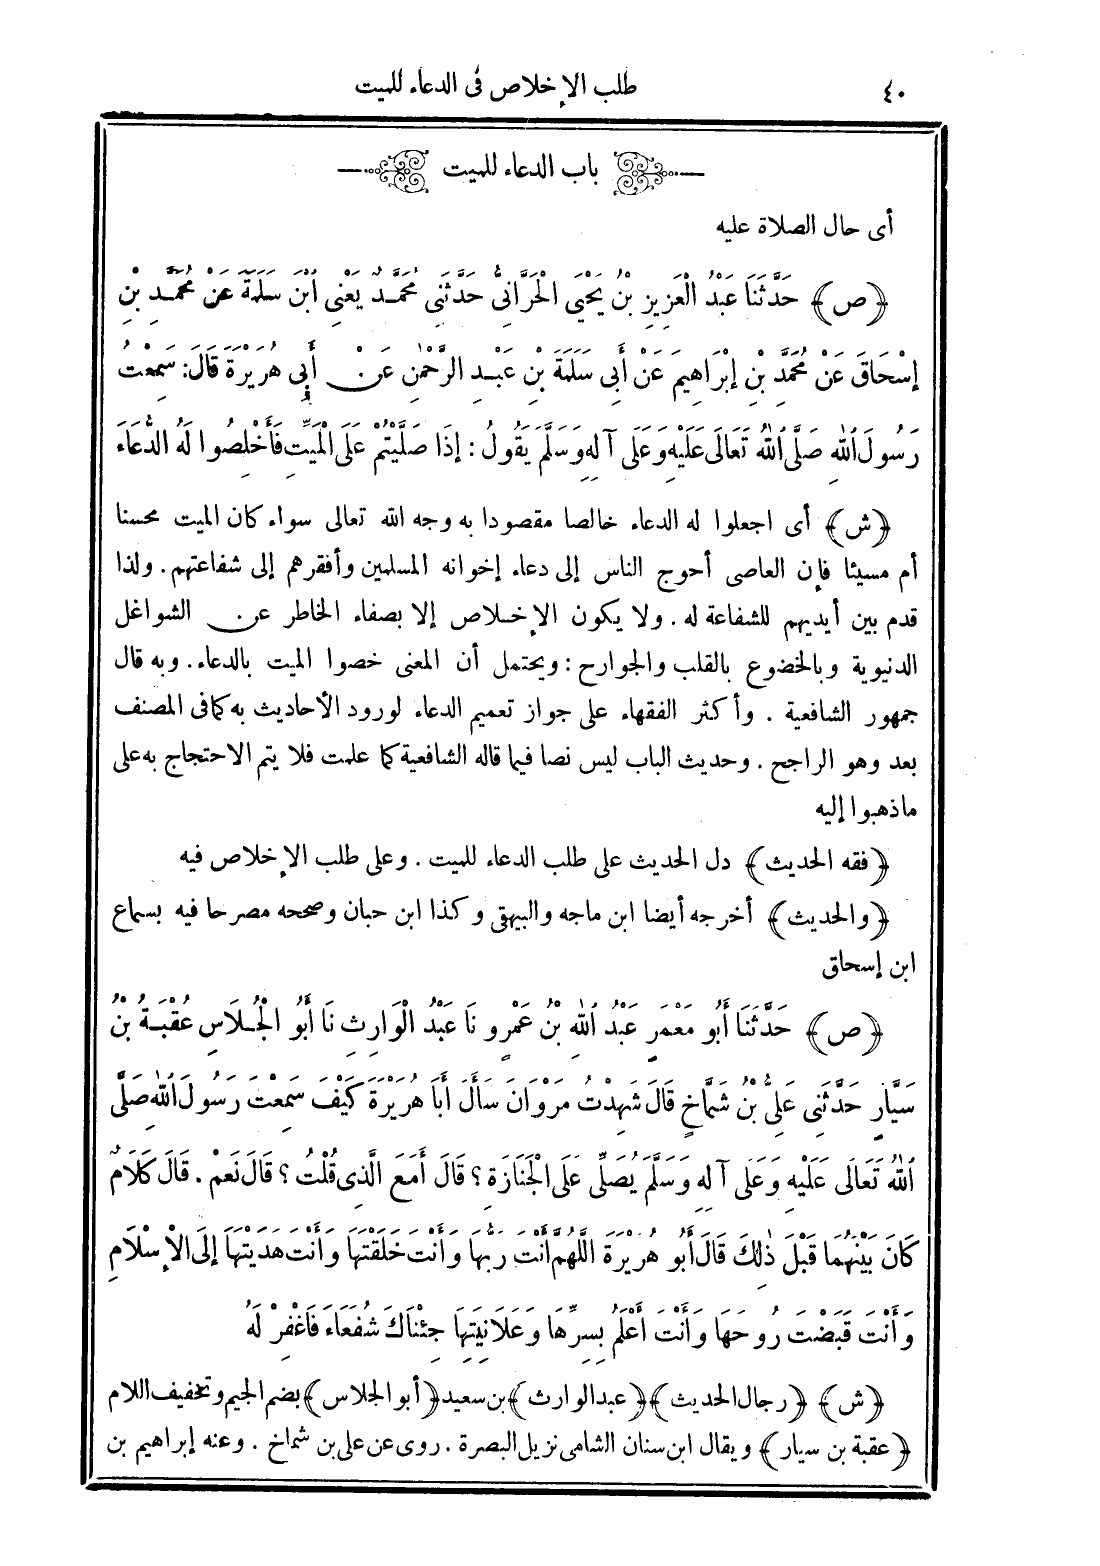 ٤٠ طلب الإخلاص فى الدعاء للميت
باب الدعاء للميت
أى حال الصلاة عليه
﴿ص﴾ حَدَّثَنَا عَبْدُ الْعَزِيزِ بْنُ يَحْيَى الْحَرَّانِىُّ حَدَّثَنِى مُحَمَّدٌ يَعْنِى ابْنَ سَلَمَةَ عَنْ مُحَمَّدِ بْنِ
إِسْحَاقَ عَنْ مُحَمَّدِ بْنِ إِبْرَاهِيمَ عَنْ أَبِى سَلَمَةَ بْنِ عَبْدِ الرَّحْمٰنِ عَنْ أَبِى هُرَيْرَةَ قَالَ: سَمِعْتُ
رَسُولَ اللهِ صَلَّى اللهُ تَعَالَى عَلَيْهِ وَعَلَى آلِهِ وَسَلَّمَ يَقُولُ: إِذَا صَلَّيْتُمْ عَلَى الْمَيِّتِ فَأَخْلِصُوا لَهُ الدُّعَاءَ
﴿ش﴾ أى اجعلوا له الدعاء خالصا مقصودا به وجه الله تعالى سواء كان الميت محسنا
أم مسيئا فإن العاصى أحوج الناس إلى دعاء إخوانه المسلمين وأفقرهم إلى شفاعتهم. ولذا
قدم بين أيديهم للشفاعة له. ولا يكون الإخلاص إلا بصفاء الخاطر عن الشواغل
الدنيوية وبالخضوع بالقلب والجوارح: ويحتمل أن المعنى خصوا الميت بالدعاء. وبه قال
جمهور الشافعية. وأكثر الفقهاء على جواز تعميم الدعاء لورود الأحاديث به كما فى المصنف
بعد وهو الراجح. وحديث الباب ليس نصا فيما قاله الشافعية كما علمت فلا يتم الاحتجاج به على
ماذهبوا إليه
﴿فقه الحديث﴾ دل الحديث على طلب الدعاء للميت. وعلى طلب الإخلاص فيه
﴿والحديث﴾ أخرجه أيضا ابن ماجه والبيهقى وكذا ابن حبان وصححه مصرحا فيه بسماع
ابن إسحاق
﴿ص﴾ حَدَّثَنَا أَبُو مَعْمَرٍ عَبْدُ اللهِ بْنُ عَمْرٍو نَا عَبْدُ الْوَارِثِ نَا أَبُو الْجُلَاسِ عُقْبَةُ بْنُ
سَيَّارٍ حَدَّثَنِى عَلِىُّ بْنُ شَمَّاخٍ قَالَ شَهِدْتُ مَرْوَانَ سَأَلَ أَبَا هُرَيْرَةَ كَيْفَ سَمِعْتَ رَسُولَ اللهِ صَلَّى
اللهُ تَعَالَى عَلَيْهِ وَعَلَى آلِهِ وَسَلَّمَ يُصَلِّى عَلَى الْجَنَازَةِ؟ قَالَ أَمَعَ الَّذِى قُلْتُ؟ قَالَ نَعَمْ. قَالَ كَلَامٌ
كَانَ بَيْنَهُمَا قَبْلَ ذٰلِكَ قَالَ أَبُو هُرَيْرَةَ اللّٰهُمَّ أَنْتَ رَبُّهَا وَأَنْتَ خَلَقْتَهَا وَأَنْتَ هَدَيْتَهَا إِلَى الْإِسْلَامِ
وَأَنْتَ قَبَضْتَ رُوحَهَا وَأَنْتَ أَعْلَمُ بِسِرِّهَا وَعَلَانِيَتِهَا جِئْنَاكَ شُفَعَاءَ فَاغْفِرْ لَهُ
﴿ش﴾ ﴿رجال الحديث﴾ ﴿عبد الوارث﴾ بن سعيد ﴿أبو الجلاس﴾ بضم الجيم وتخفيف اللام
﴿عقبة بن سيار﴾ ويقال ابن سنان الشامى نزيل البصرة. روى عن على بن شماخ. وعنه إبراهيم بن